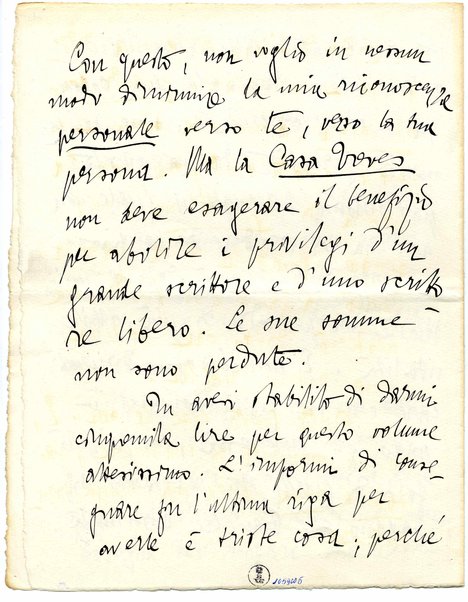 Con questo, non voglio in nessun
modo diminuire la mia riconoscenza
personale verso te, verso la tua
persona. Ma la Casa Treves
non deve esagerare il benefizio
per abolire i privilegi d'un
grande scrittore e d'uno scritto-
re libero. Le sue somme
non sono perdute.
Tu avevi stabilito di darmi
cinquemila lire per questo volume
attesissimo. L'impormi di conse-
gnare fin l'ultima riga per
averle è triste cosa; perché